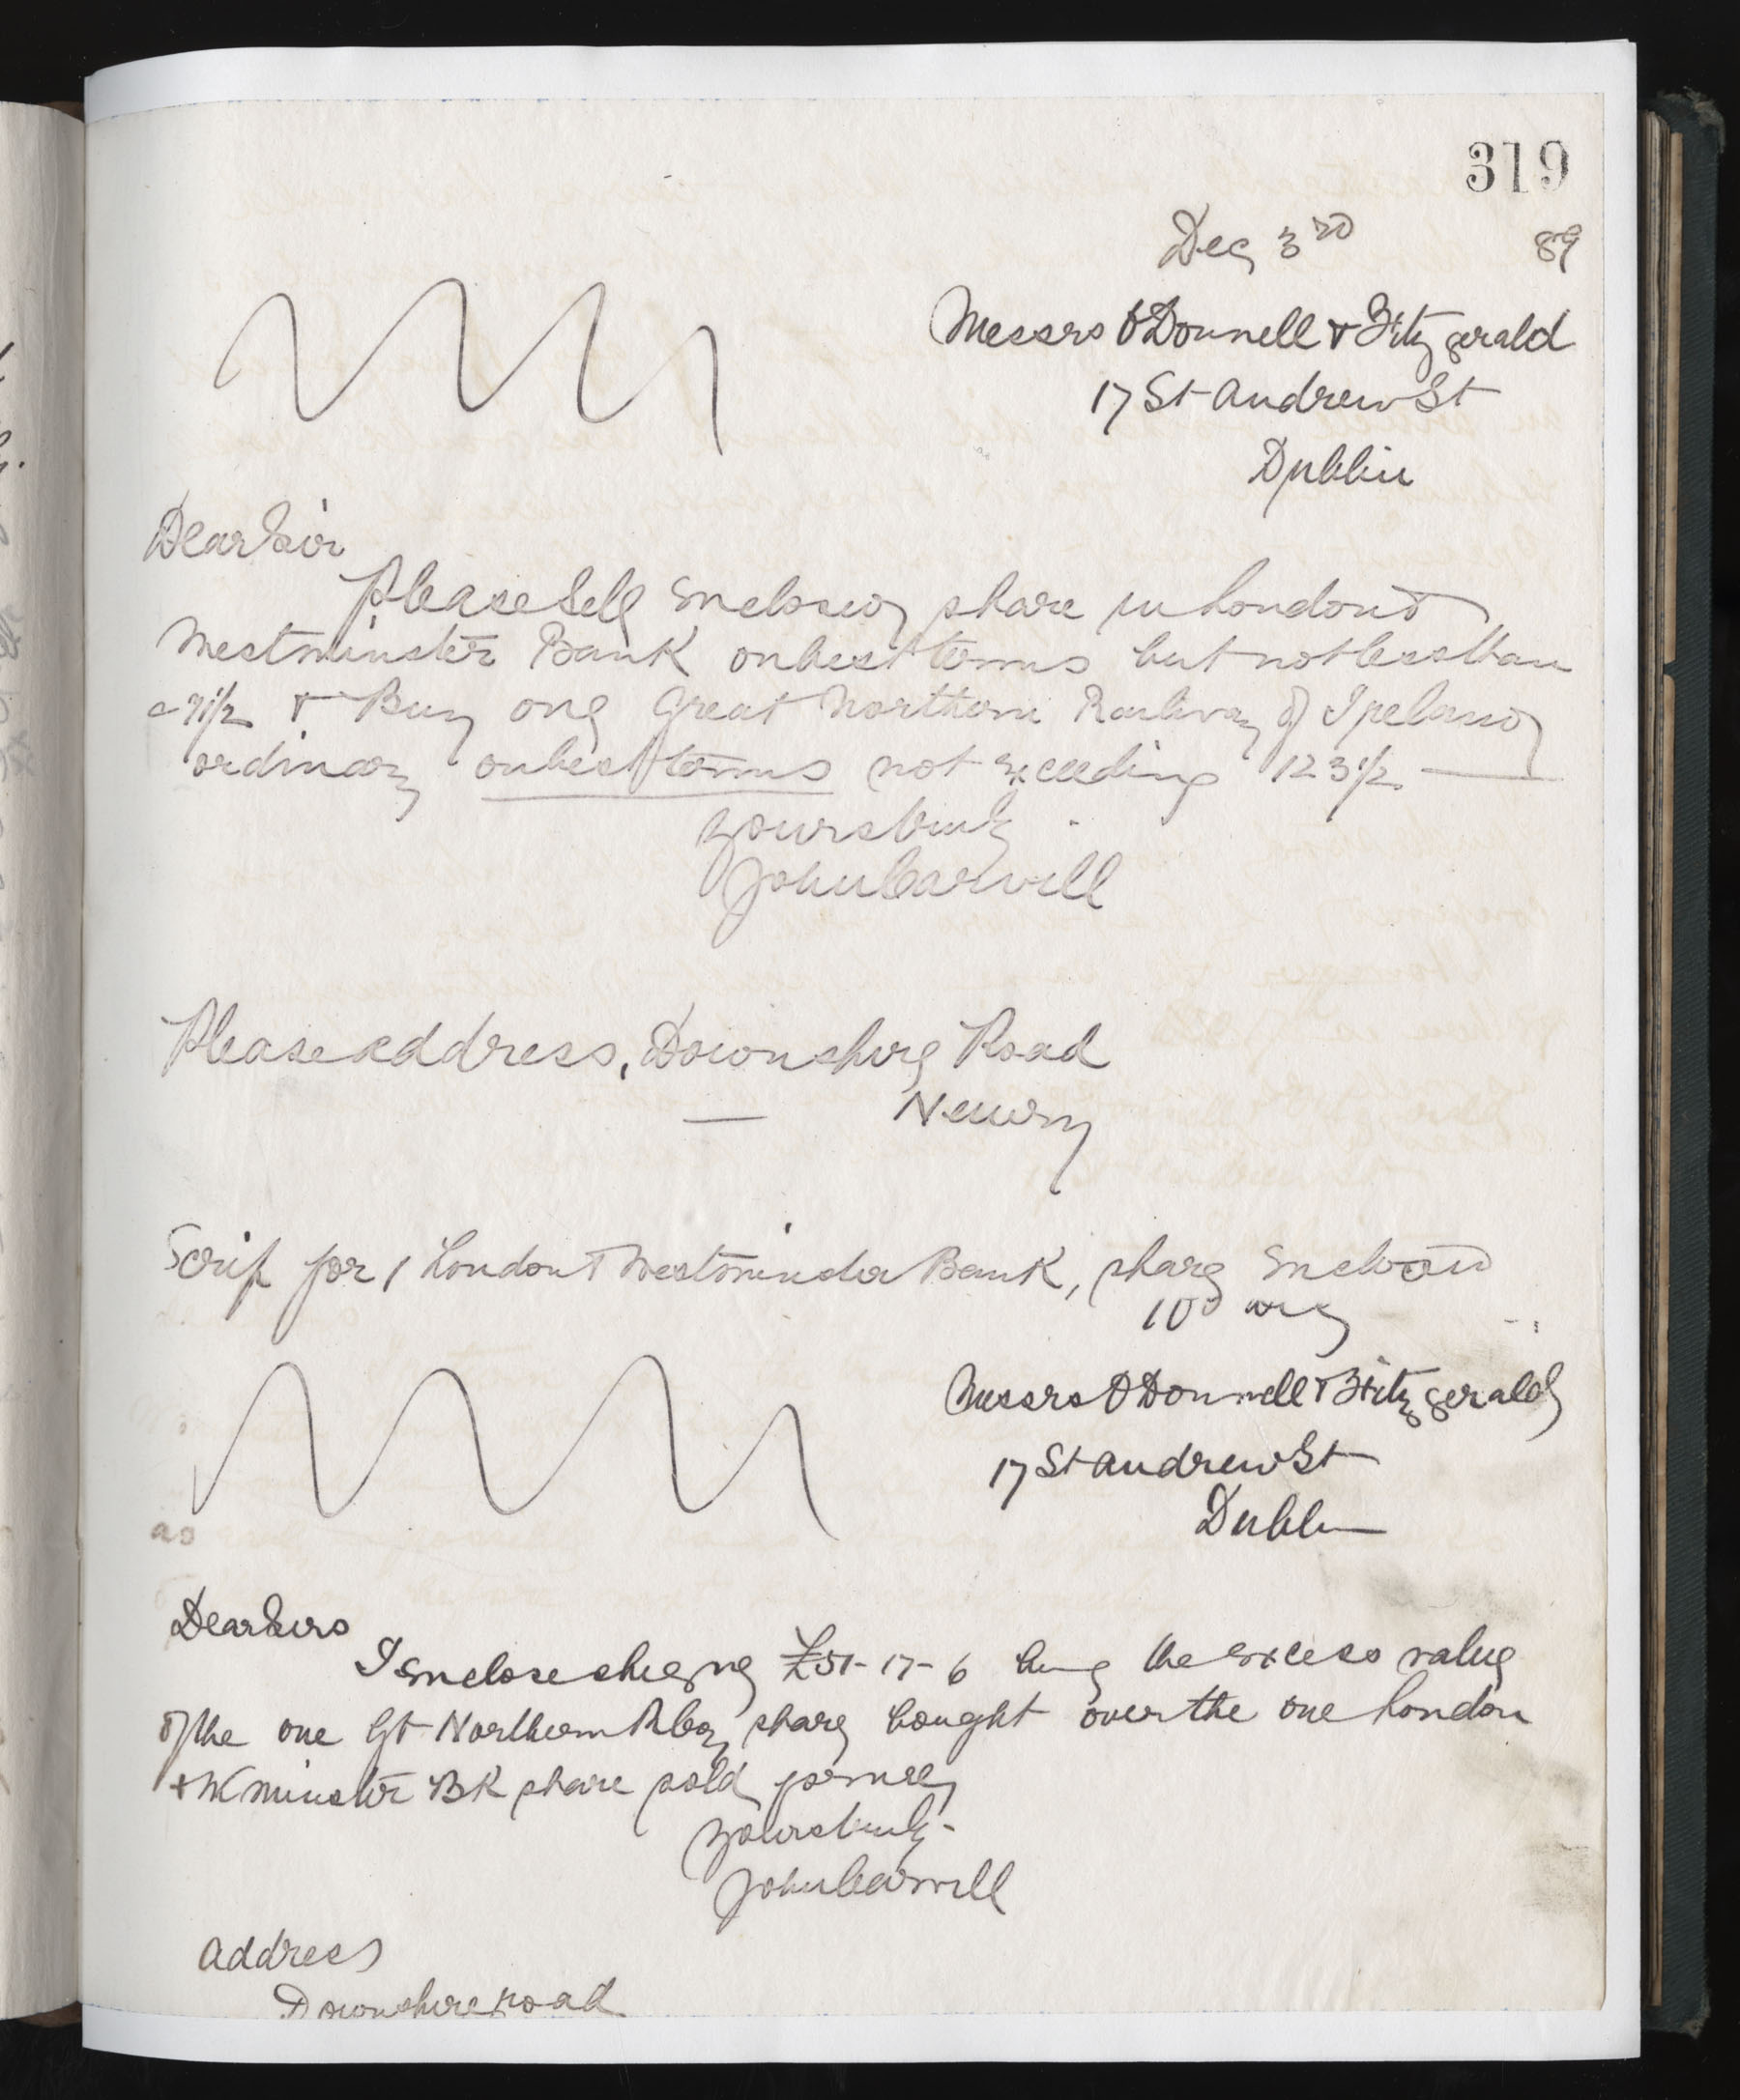 319
Dec 3rd 89
Messrs O'Donnell & Fitzgerald
17 St Andrew St
Dublin
Dear Sir
Please Sell Enclosed share in London &
Westminster Bank on best terms but not less than
71½ & Buy one Great Northern Railway of Ireland
ordinary on best terms not exceeding 123½
yours truly
John Carvill
Please address, Downshire Road
Newry
Scrip for 1 London & Westminster Bank, share Enclosed
10d
Messrs O'Donnell & Fitzgerald
17 St Andrew St
Dublin
as
Dear Sirs
I Enclose cheque £51-17-6 being the excess value
of the one Gt Northern Rlway share bought over the one London
& Wminster BK share sold for me
yours truly
John Carvill
address
Downshire road